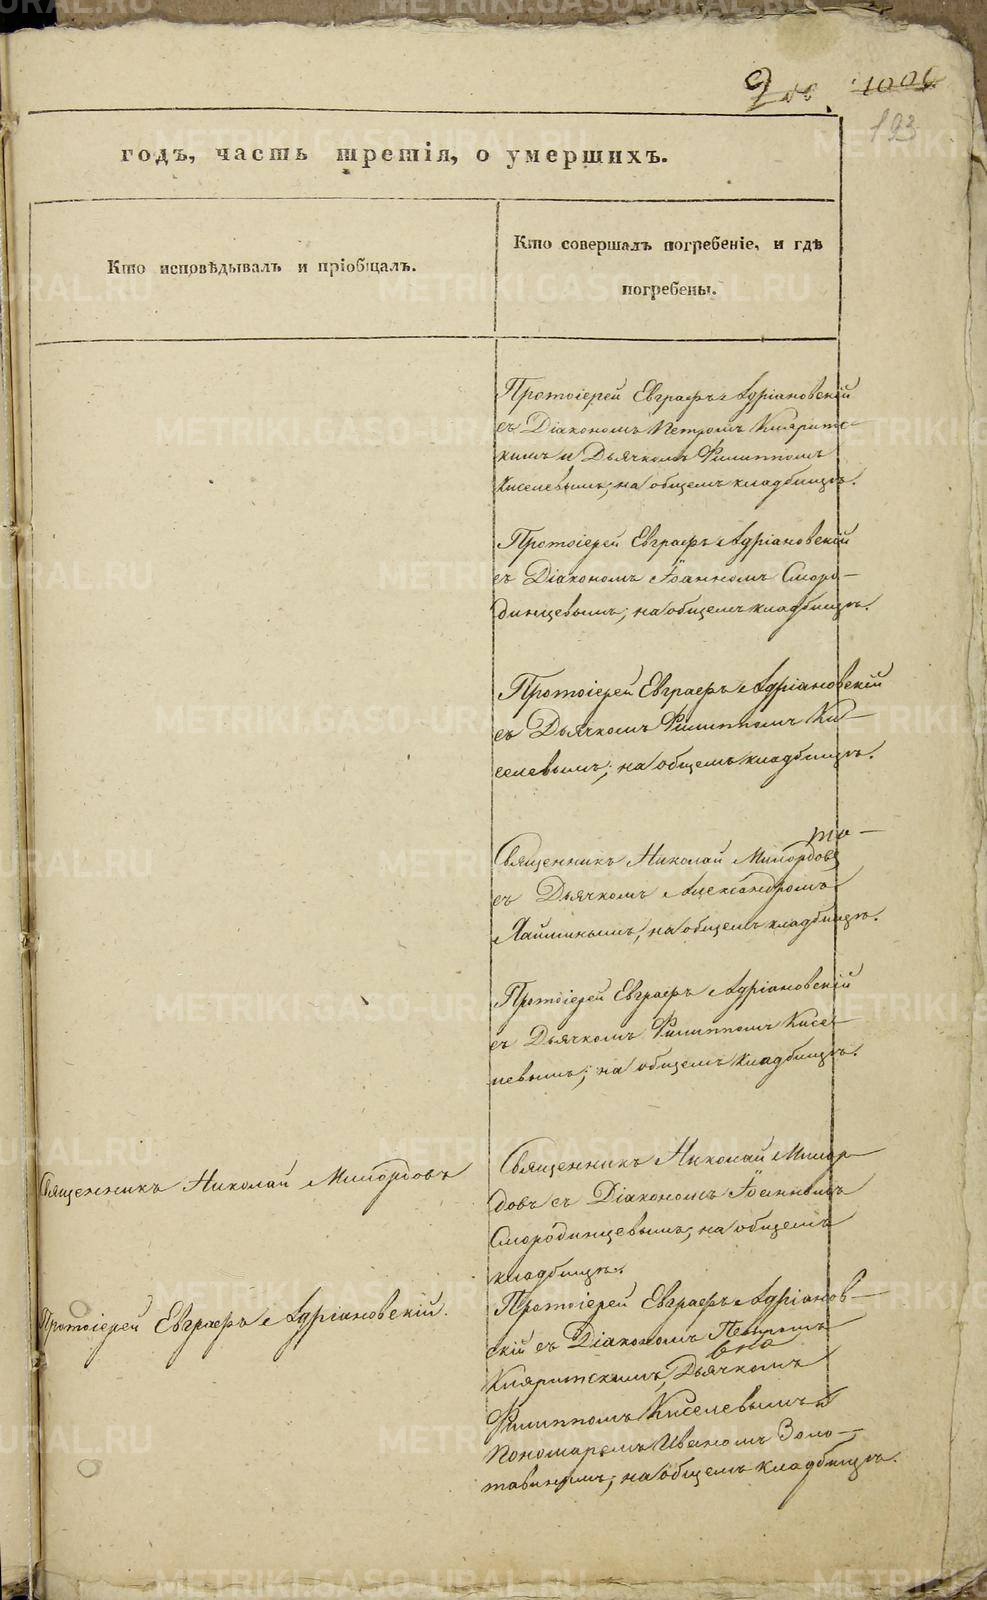 1006
193
годъ, часть третія, о умершихъ.
Кто исповѣдывалъ и пріобщалъ.
Кто совершалъ погребеніе, и гдѣ
погребены.
Протоіерей Евграфъ Адріановскій
съ Діакономъ Петромъ Кляритс-
кимъ и Дьячкомъ Филиппомъ
Киселевымъ; на общемъ кладбищѣ.
Протоіерей Евграфъ Адріановскій
съ Діакономъ Іоанномъ Сморо-
динцевымъ; на общемъ кладбищѣ.
Протоіерей Евграфъ Адріановскій
съ Дьячкомъ Филиппомъ Ки-
селевымъ; на общемъ кладбищѣ.
Священникъ Николай Милордовъ
съ Дьячкомъ Александромъ
на общемъ кладбищѣ.
Протоіерей Евграфъ Адріановскій
съ Дьячкомъ Филиппомъ Кисе-
левымъ; на общемъ кладбищѣ.
Священникъ Николай Милордовъ
Священникъ Николай Милор-
довъ съ Діакономъ Іоанномъ
Смородинцевымъ; на общемъ
кладбищѣ.
Протоіерей Евграфъ Адріановскій.
Протоіерей Евграфъ Адріанов-
скій съ Діакономъ Петромъ
Кляритскимъ, Дьячкомъ
Филиппомъ Киселевымъ и
Пономаремъ Иваномъ Золо-
тавинымъ; на общемъ кладбищѣ.
METRIKI.GASO-URAL.RU